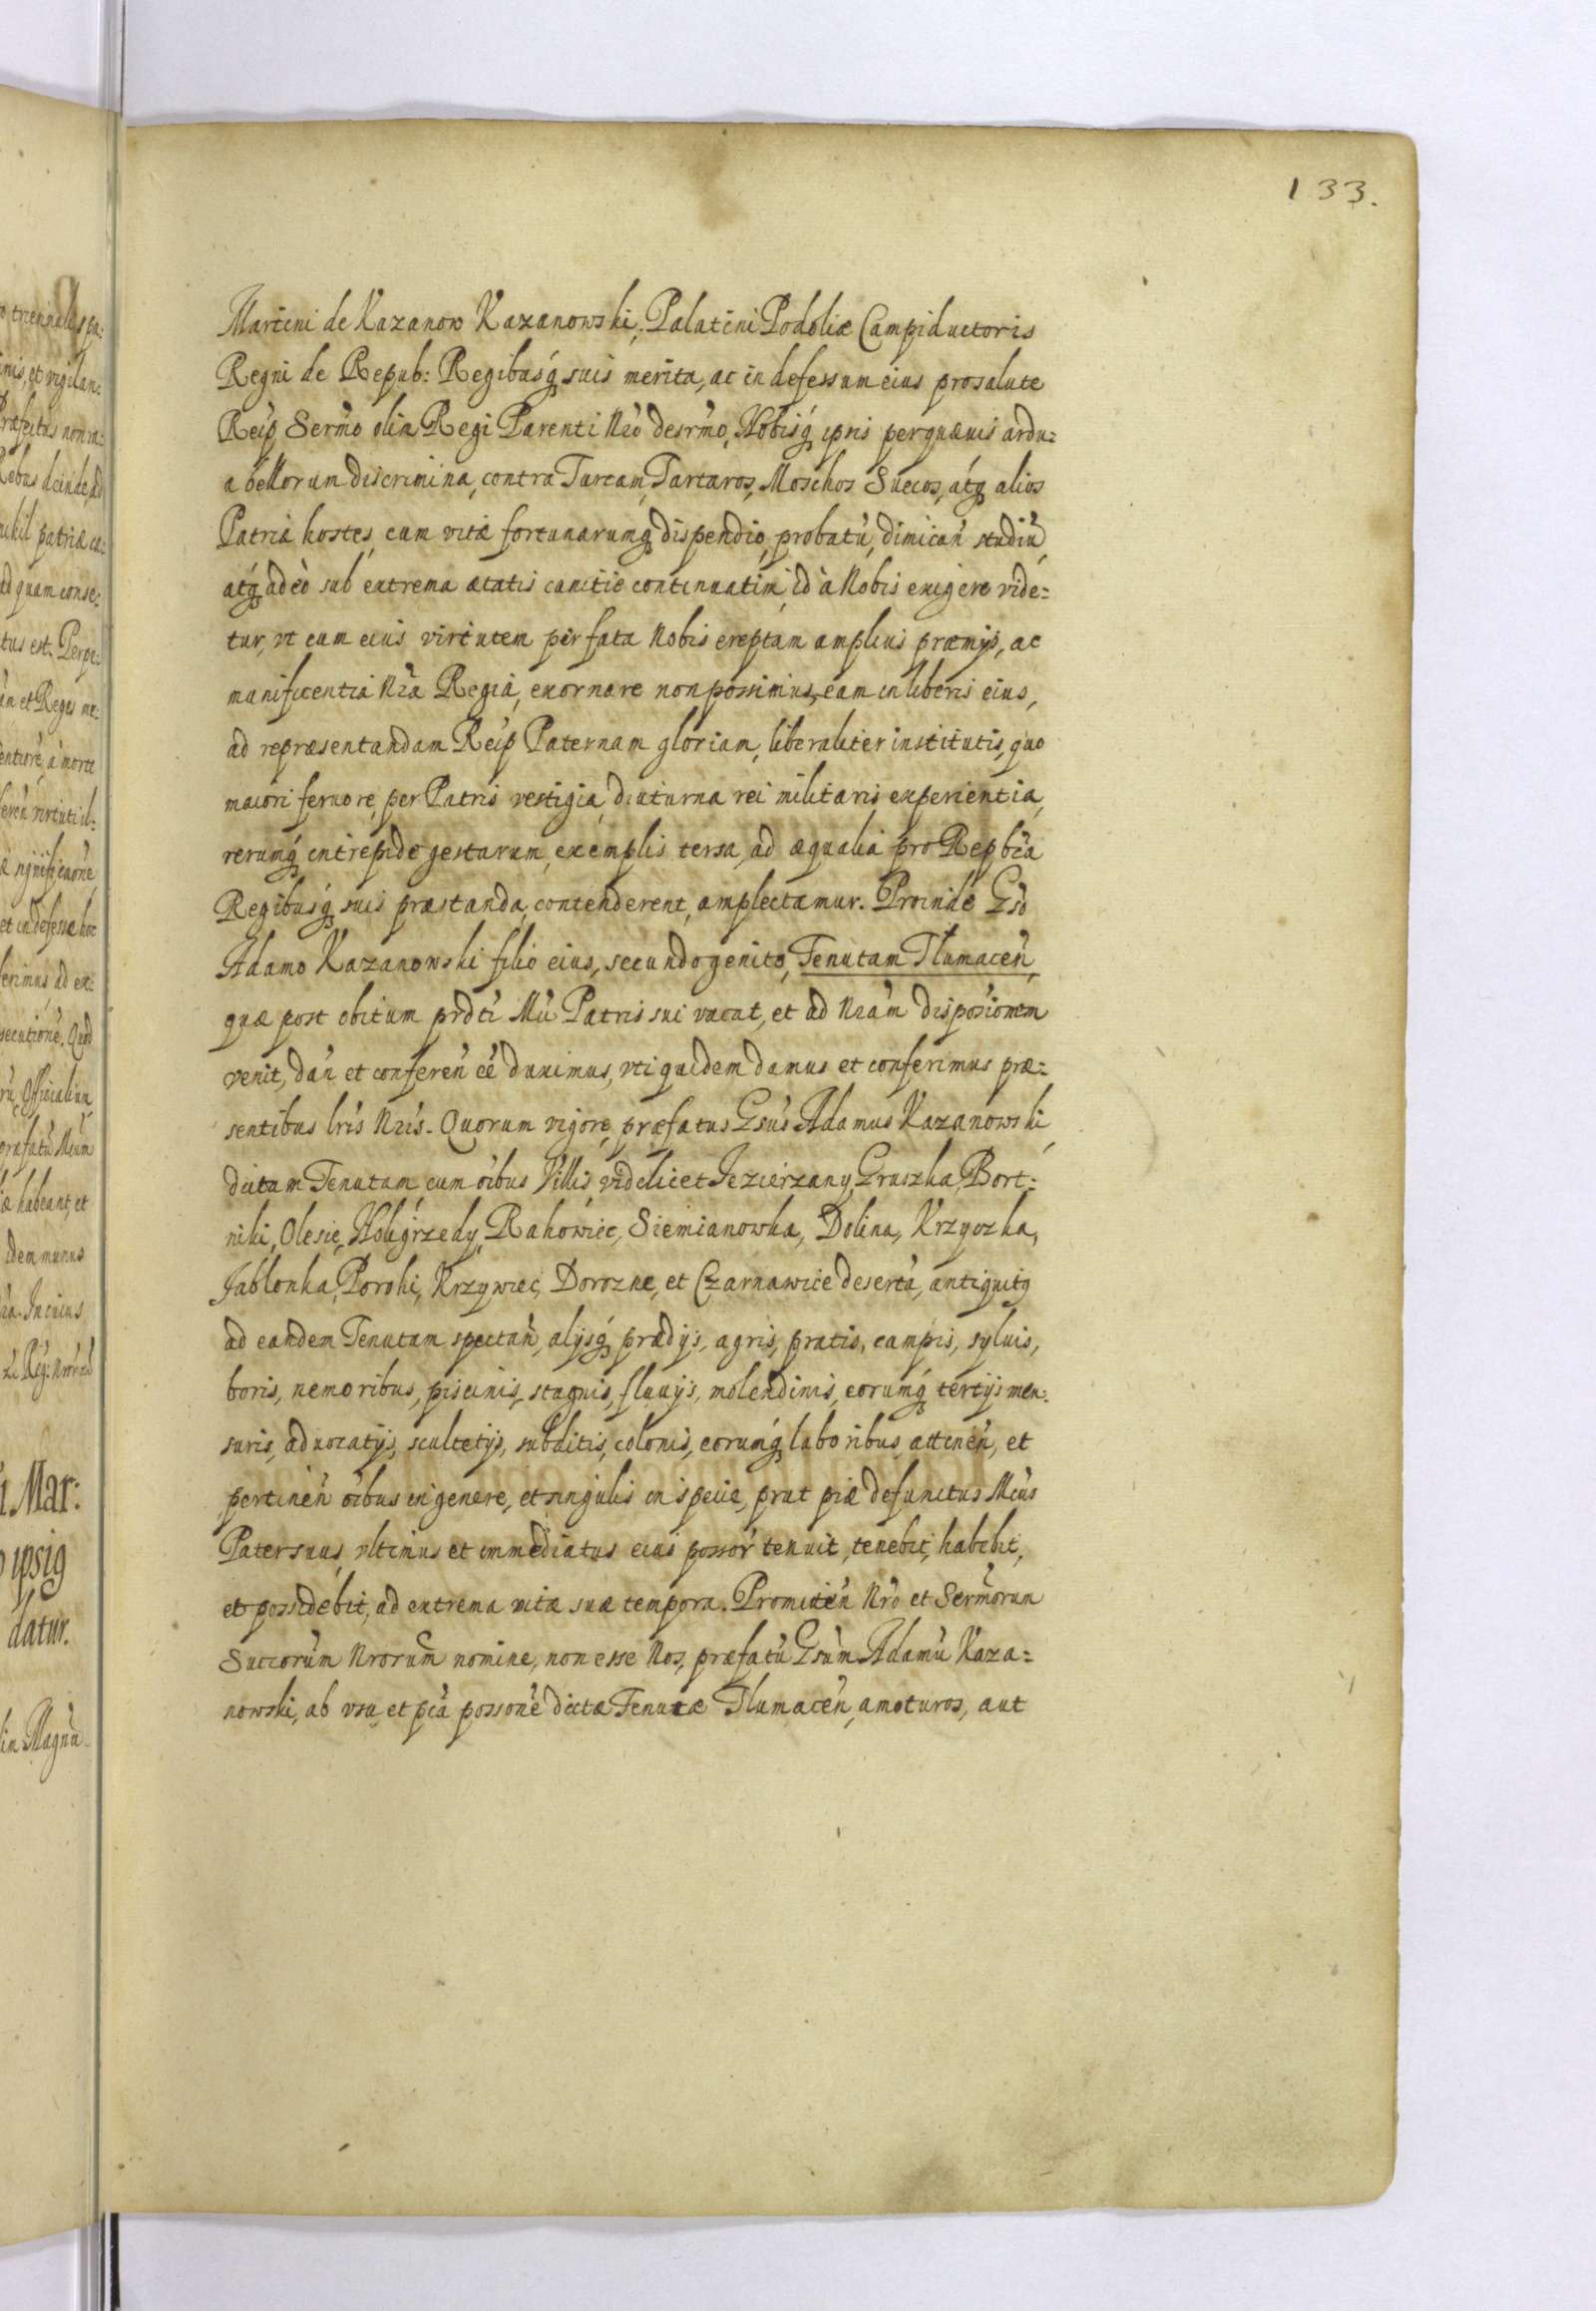 133.
Martini de Kazanow Kazanowski, Palatini Podoliæ Campiductoris
Regni de Repub: Regibusq́ suis merita, ac indefessum eius pro salute
Reip̃ Sermõ olim Regi Parenti Nrõ desrmõ, Nobisq́ ipsis perquæuis ardu:
a bellorum discrimina, contra Turcam, Tartaros, Moschos Suecos, atq́ alios
Patriæ hostes, cum vitæ fortunarumq́ dispendio, probatũ, dimicañ studiũ,
atq́ adeò sub extrema ætatis canitie continuatim, id à Nobis exigere vide:
tur, vt cum eius virtutem per fata Nobis ereptam amplius præmijs, ac
munificentia Nrã Regiá, exornare non possimus, eam in liberis eius,
ad repræsentandam Reip̃ Paternam gloriam, liberaliter institutis, quo
maiori feruore, per Patris vestigia, diuturna rei militaris experientia,
rerumq́ intrepide gestarum, exemplis tersa, ad æqualia pro Repbcã
Regibusq́ suis præstanda, contenderent, amplectamur. Proindè Gsõ
Adamo Kazanowski filio eius, secundogenito, Tenutam Tlumaceñ,
quæ post obitum prdtĩ Mcĩ Patris sui vacat, et ad Nrãm disposĩonem
venit, dañ et confereñ eẽ duximus, vti quidem damus et conferimus præ:
sentibus lrĩs Nrĩs. Quorum vigore, præfatus Gsũs Adamus Kazanowski,
dictam Tenutam cum oĩbus Villis videlicet Jezierzany, Gruszka, Bort:
niki, Olesie, Holigrzedy, Rakowiec, Siemianowka, Dolina, Krzyozka,
Jablonka, Porohi, Krzywiec, Dorozne, et Czarnawice deserta, antiquitq
ad eandem Tenutam spectañ, alijsq́ prædijs, agris, pratis, campis, syluis,
boris, nemoribus, piscinis, stagnis, fluuijs, molendinis, eorumq́ tertijs men:
suris, aduocatijs, scultetijs, subditis, colonis, eorumq́ laboribus, attineñ, et
pertineñ oĩbus in genere, et singulis in specie, prut piæ defunctus Mcũs
Pater suus, vltimus et immediatus eius possõr tenuit, tenebit, habebit,
et possidebit, ad extrema vitæ suæ tempora. Promitteñ Nrõ et Sermõrum
Succorũm Nrorũm nomine, non esse Nos, præfatũ Gsũm Adamũ Kaza:
nowski, ab vsu, et pcã possonẽ dictæ Tenutæ Tlumaceñ, amoturos, aut